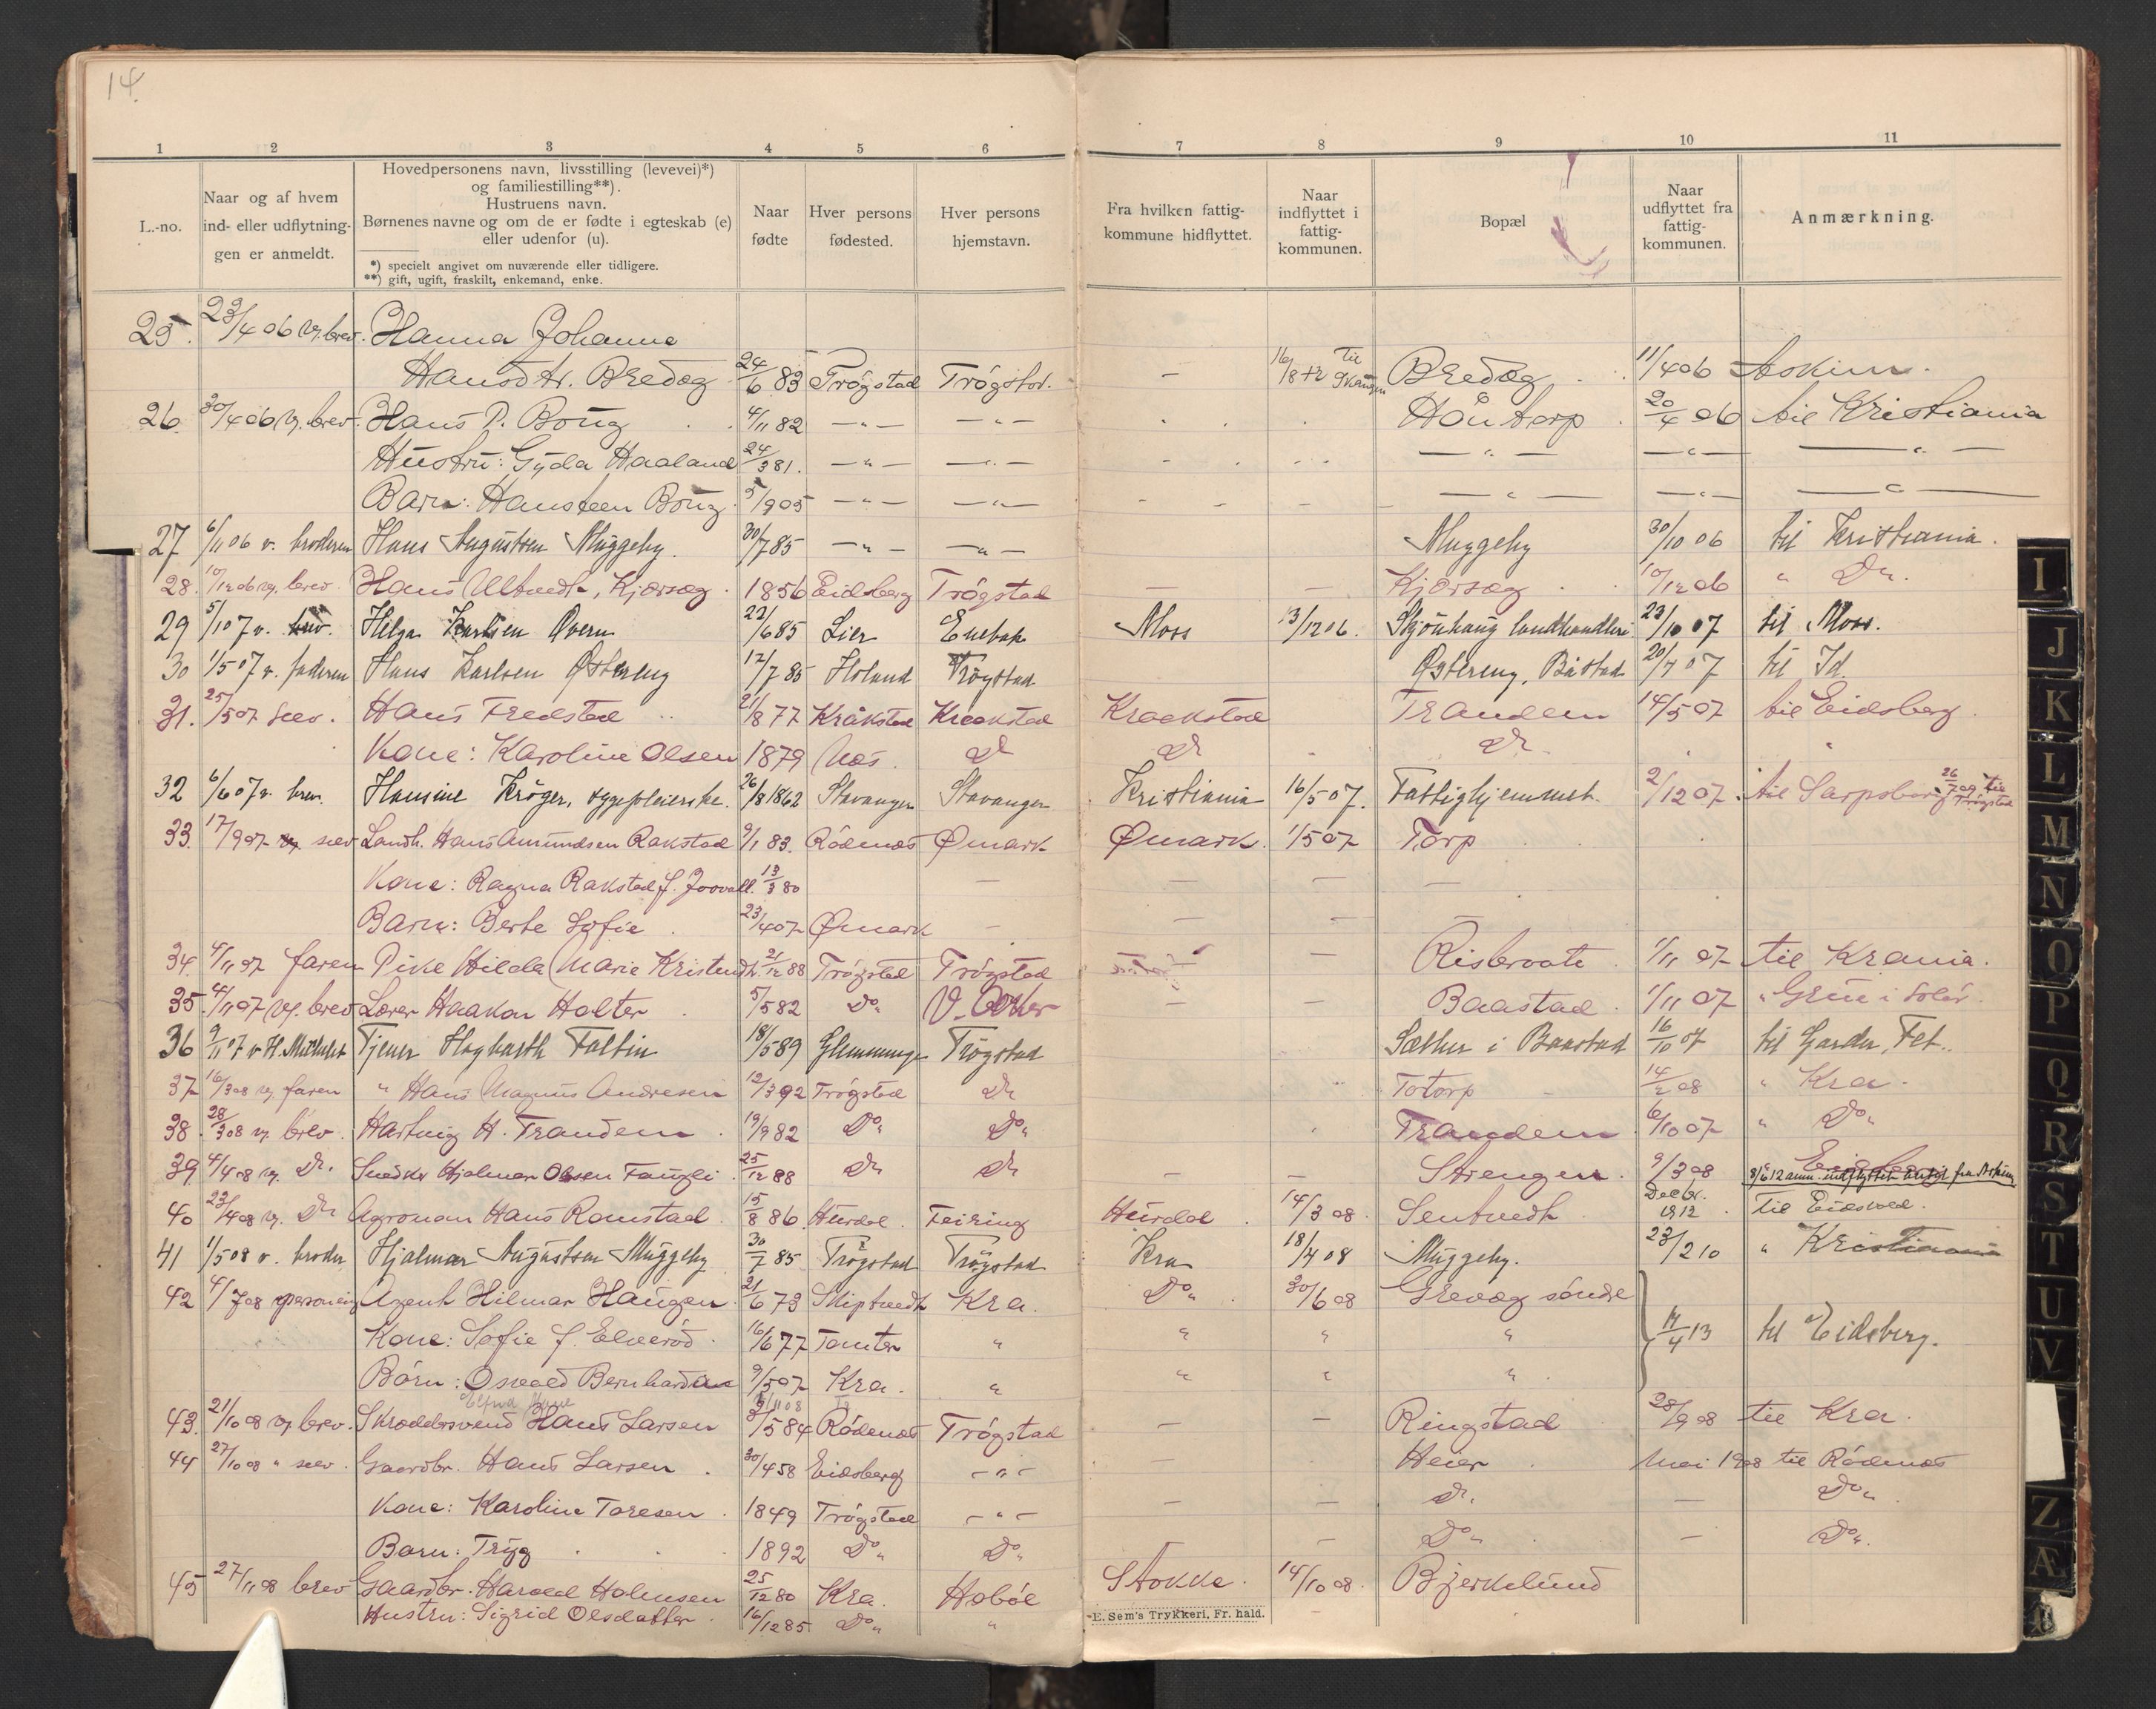 14.
1 2 3 4 5 6 7 8 9 10 11
L.-no.
Naar og af hvem
ind- eller udflytnin-
gen er anmeldt.
Hovedpersonens navn, livsstilling (levevei)*)
og familiestilling**).
Hustruens navn.
Børnenes navne og om de er fødte i egteskab (e)
eller udenfor (u).
*) specielt angivet om nuværende eller tidligere.
**) gift, ugift, fraskilt, enkemand, enke.
Naar
fødte
Hver persons
fødested.
Hver persons
hjemstavn.
Fra hvilken fattig-
kommune hidflyttet.
Naar
indflyttet i
fattig-
kommunen.
Bopæl
Naar
udflyttet fra
fattig-
kommunen.
Anmærkning.
25. 23/4 06 v. brev. Hanna Johanne
Hansdtr. Bredæg 24/6 83 Trøgstad Trøgstad. — 16/8 12 til Skaugen Bredæg 11/4 06 Askim.
26. 30/4 06 v. brev. Hans P. Boug 4/11 82 —"— —"— Höntorp 20/4 06 til Kristiania
Hustru: Gyda Haaland 24/3 81. —"— —"— —"— —"— —"—
Barn: Hansteen Boug 5/1905 —"— —"— —"— —"— —"—
27 6/11 06 v. broderen Hans Augustsen Muggeby. 30/7 85 —"— —"— Muggeby 30/10 06 til Kristiania.
28. 10/12 06 v. brev. Hans Ultvedt, Kjørsæg. 1856 Eidsberg Trøgstad — — Kjørsæg 10/12 06 " Do.
29 5/1 07 v. brev. Helga Karlsen Overn 22/6 85 Lier Enebak Moss 13/12 06. Skjönhaug landhandleri 23/10 07 til Moss.
30 1/5 07 v. faderen Hans Karlsen Østereng 12/7 85 Høland Trøgstad Østereng, Båstad 20/4 07 til Id.
31. 25/5 07 selv. Hans Fredstad 21/8 77 Kråkstad Kraakstad Kraakstad Trandem 14/5 07 til Eidsberg.
Kone: Karoline Olsen 1879 Næs. Do Do Do.
32 6/6 07 v. brev. Hansine Krøger, sygepleierske. 26/8 1862 Stavanger Stavanger Kristiania 16/5 07. Fattighjemmet. 2/12 07. til Sarpsborg 26/7 09 til Trøgstad
33. 17/9 07 v. selv Landh. Hans Amundsen Rakstad 9/1 83. Rødenæs Ømark Ømark. 1/5 07 Torp
Kone: Ragna Rakstad f. Joovall. 13/3 80 — — — —
Barn: Berte Sofie. 23/4 07 Ømark — — — —
34. 4/11 07 faren Pike Hilda Marie Kristendtr. 21/12 88 Trøgstad Trøgstad — Risbraate 1/11 07 til Krania.
35. 4/11 07 v. brev Lærer Haakon Holter 5/5 82 Do. V. — — Baastad 1/11 07 " Grue i Solør.
36 9/11 07 v. H. Tjener Hagbarth Faltin 18/5 89 Glemminge Trøgstad Sæther i Baastad 16/10 07 til Garder, Fet.
37 16/3 08 v. faren " Hans Magnus Andresen 12/3 92 Trøgstad Do Totorp 14/2 08 " Kra.
38. 28/3 08 v. brev. Hartvig H. Trandem 19/9 82 Do. Do. Trandem 6/10 07 " Do.
39 4/4 08 v. Do. Snedker Hjalmar Olsen Faugli 25/12 88 Do Do — — Strengen. 9/3 08 8/6 12 anm. indflyttet hertil fra Askim
40 23/4 08 v. Do Agronom Hans Ramstad 15/8 86 Hurdal. Feiring Hurdal 14/3 08. Sentvedt Decbr. 1912. til Eidsvold.
41 1/5 08 v. broder Hjalmar Augustsen Muggeby 30/7 85 Trøgstad Trøgstad Kra 18/4 08 Muggeby. 23/2 10 " Kristiania
42 4/7 08 personlig Agent Hilmar Haugen 21/6 73 Skiptvedt Kra. Do. 30/6 08 Grevæg søndre
Kone: Sofie f. Elverød. 16/6 77 Tomter " " " " 14/4 13 til Eidsberg.
Børn: Osvald Bernhard 9/5 07 Kra. " " " "
43. 21/10 08 v. brev. Skræddersvend Hans Larsen 3/5 84 Rødenæs Trøgstad — — Ringstad 28/9 08 til Kra.
44 27/10 08 " selv. Gaardbr. Hans Larsen 30/4 58 Eidsberg —"— — — Heier. Mai 1908 til Rødenæs
Kone: Karoline Toresen. 1849 Trøgstad —"— — — Do. — Do.
Barn: Tryg 1892 Do. Do. — Do. — Do.
45 27/11 08 brev Gaardbr. Harald Holmsen 25/12 80 Kra. Hobøl Stokke. 14/10 08. Bjerkelund
Hustru: Sigrid Olsdatter. 16/12 85 Do. "
E. Sem's Trykkeri, Fr. hald.
I
J
K
L
M
N
O
P
Q
R
S
T
U
V
Z
Æ